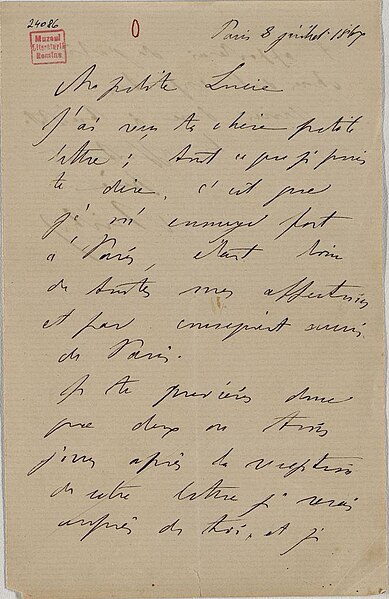 24086
Muzeul
Literaturii
Romîne
0
Paris 8 juillet 1867
Ma petite Lucie
J'ai reçu ta chère petite
lettre; tout ce que je puis
te dire, c'est que
je m'ennuye fort
à Paris, étant loin
de toutes mes affections
et par conséquent
de Paris.
Je te préviens donc
que deux ou trois
jours après la réception
de cette lettre je serai
auprès de toi, et je